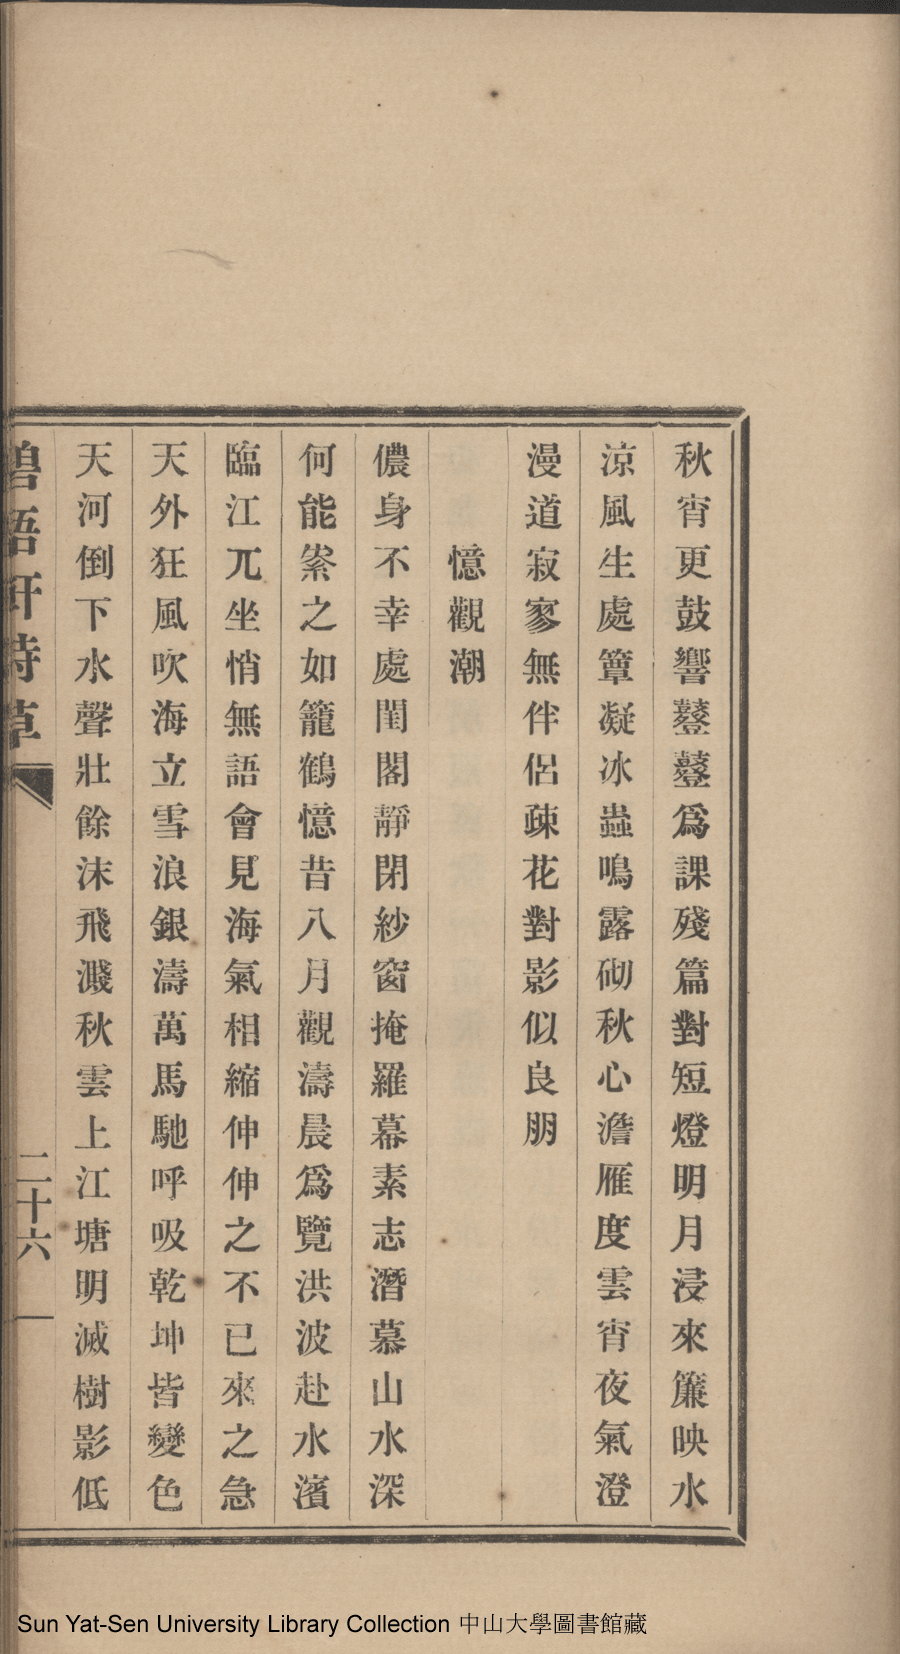 秋宵更鼓響鼟鼟爲課殘篇對短燈明月浸來簾映水
涼風生處簟凝冰蟲鳴露砌秋心澹雁度雲宵夜氣澄
漫道寂寥無伴侶疎花對影似良朋
憶觀潮
儂身不幸處閨閣靜閉紗窗掩羅幕素志潛慕山水深
何能紫之如籠鶴憶昔八月觀濤晨爲覽洪波赴水濱
臨江兀坐悄無語會見海氣相縮伸伸之不已來之急
天外狂風吹海立雪浪銀濤萬馬馳呼吸乾坤皆變色
天河倒下水聲壯餘沫飛濺秋雲上江塘明滅樹影低
碧梧軒詩草
二十六
Sun Yat-Sen University Library Collection 中山大學圖書館藏